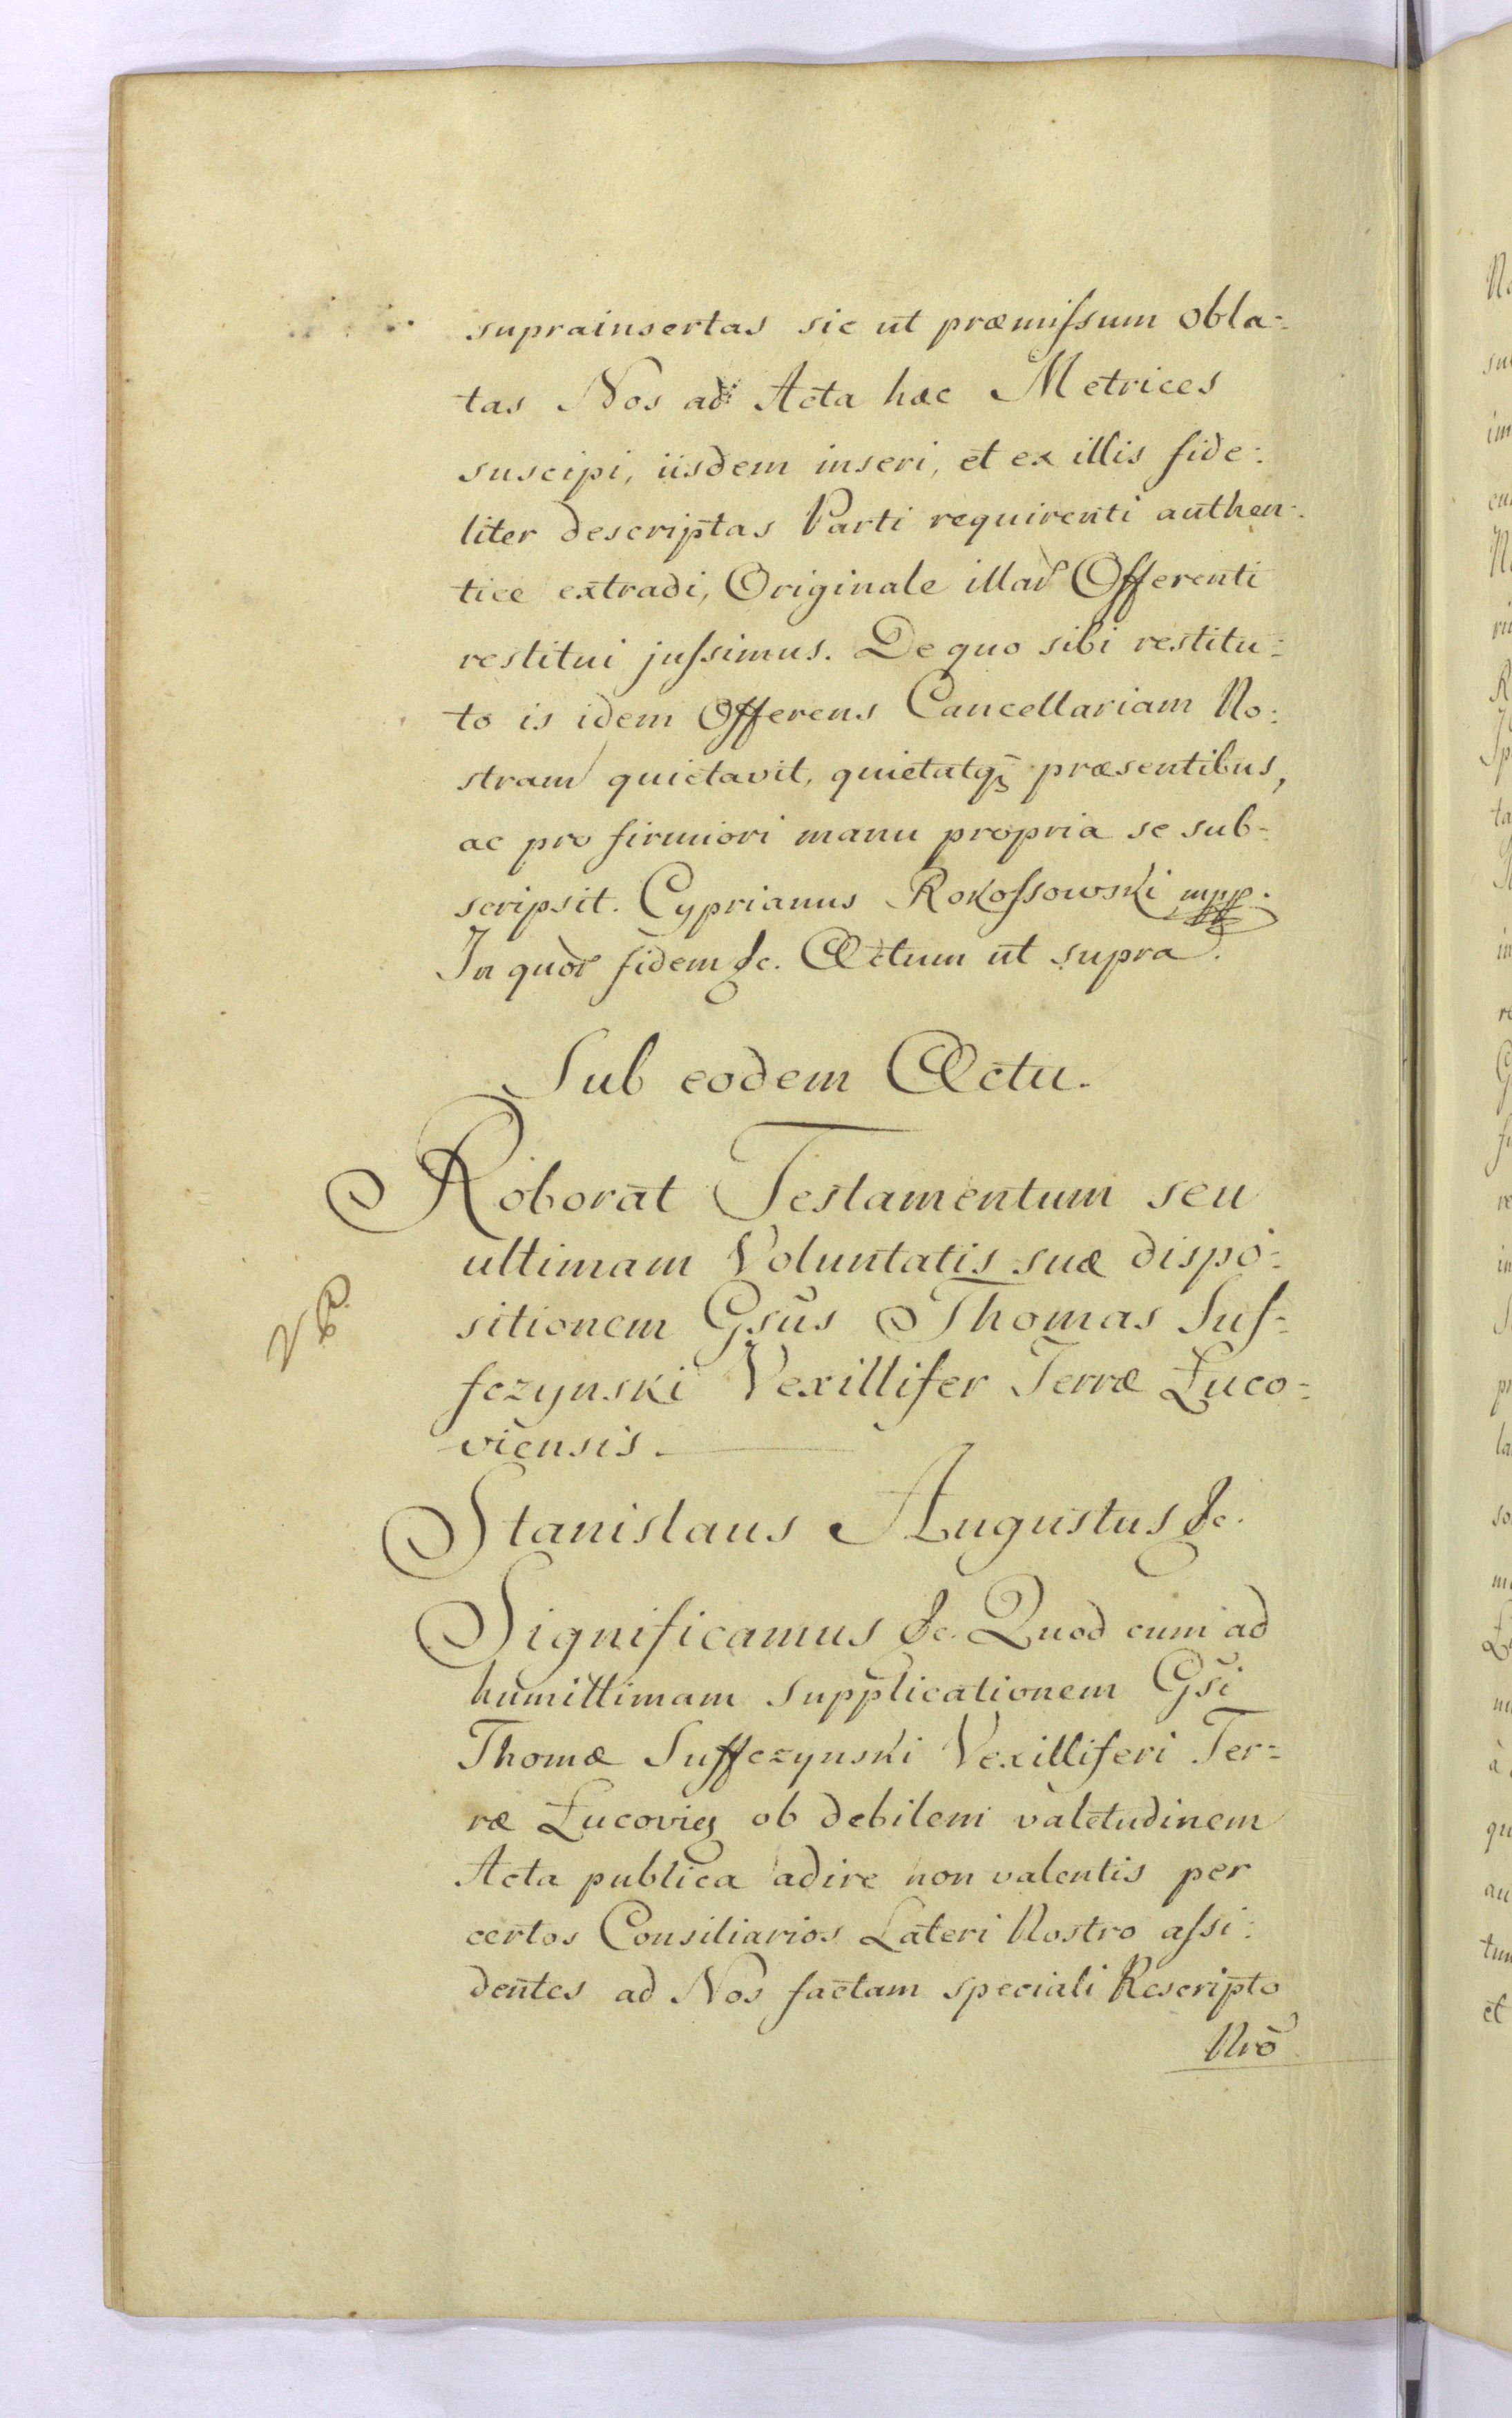 suprainsertas sic ut præmiſsum obla:
tas Nos ad Acta hæc Metrices
suscipi, iisdem inseri, et ex illis fide:
liter descriptas Parti requirenti authen:
tice extradi, Originale illar Offerenti
restitui juſsimus. De quo sibi restitu:
to is idem Offerens Cancellariam No:
stram quietavit, quietatq̃ præsentibus,
ac pro firmiori manu propria se sub:
scripsit. Cyprianus Rokoſsowski mpp.
In quor fidem &c. Actum ut supra.
Sub eodem Actu.
Roborat Testamentum seu
ultimam Voluntatis suæ dispo:
sitionem Gsũs Thomas Suf:
fczynski Vexillifer Terræ Łuco:
viensis.
Stanislaus Augustus &c.
Significamus &c. Quod cum ad
humillimam supplicationem Gsi
Thomæ Suffczynski Vexilliferi Ter:
ræ Łucovien ob debilem valetudinem
Acta publica adire non valentis per
certos Consiliarios Lateri Nostro aſsi:
dentes ad Nos factam speciali Rescripto
Nrõ